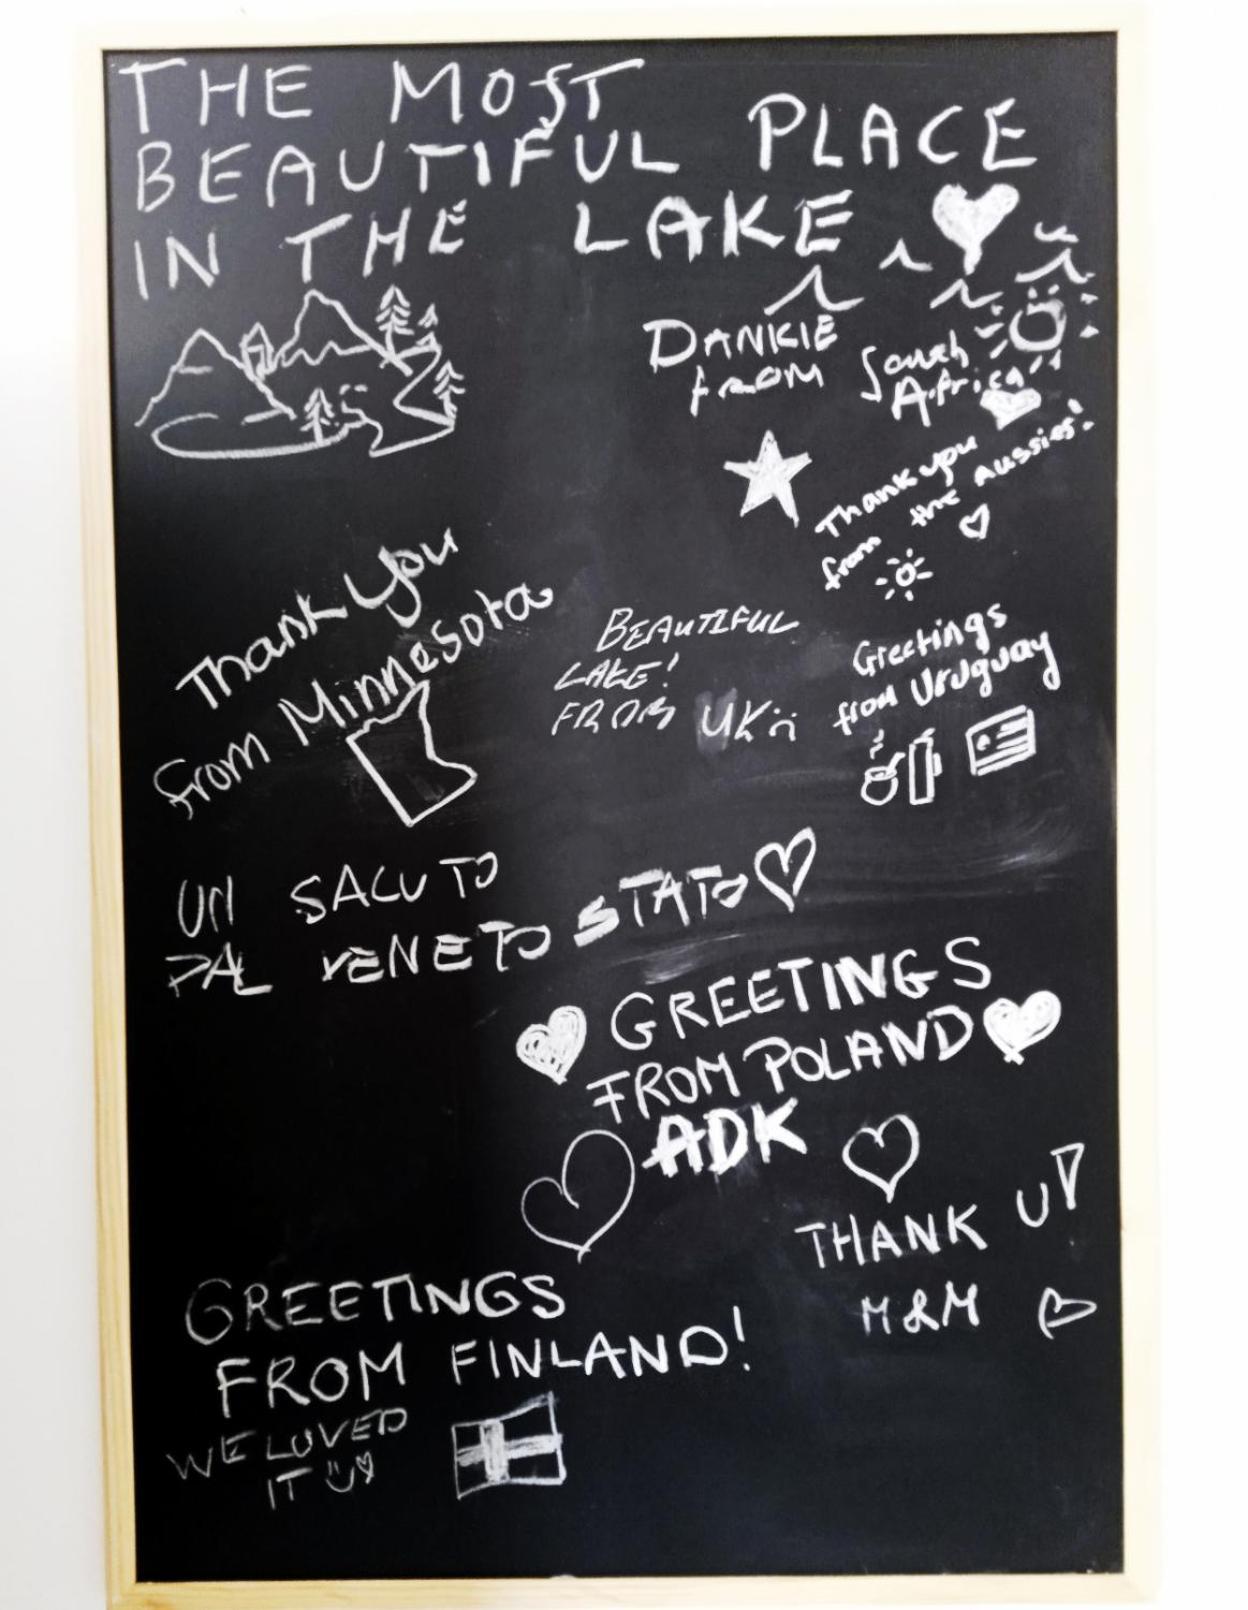 THE MOST
BEAUTIFUL PLACE
IN THE LAKE
DANKIE
FROM South
Africa
Thank you
from the Aussies!
Thank you
from Minnesota
BEAUTIFUL
LAKE!
FROM UK
Greetings
from Uruguay
UN SALUTO
DAL VENETO STATO
GREETINGS
FROM POLAND
ADK
THANK U!
M&M
GREETINGS
FROM FINLAND!
WE LOVED
IT